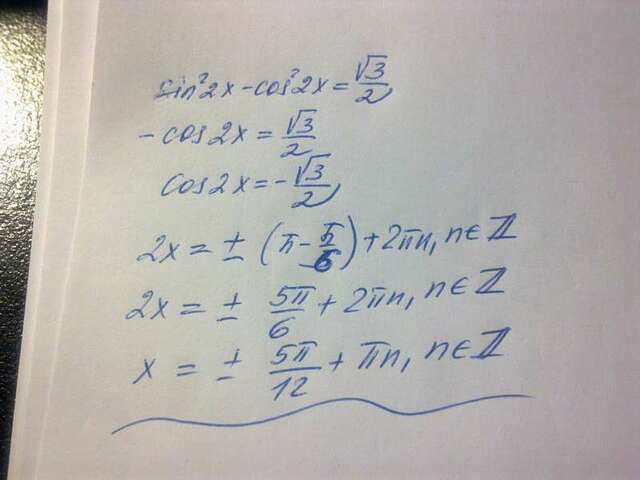 sin²2x - cos²2x = √3/2
- cos2x = √3/2
cos2x = - √3/2
2x = ± (π - π/6) + 2πn, n ∈ ℤ
2x = ± 5π/6 + 2πn, n ∈ ℤ
x = ± 5π/12 + πn, n ∈ ℤ